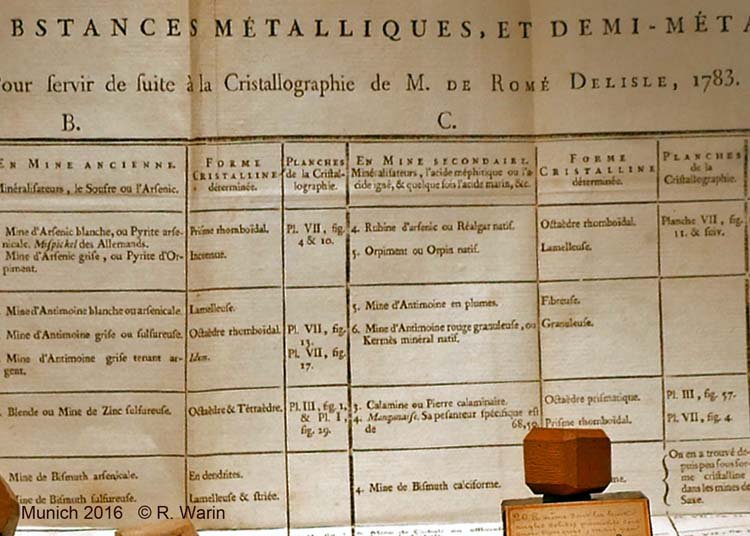 BSTANCES MÉTALLIQUES, ET DEMI-MÉTA
our servir de suite à la Cristallographie de M. DE ROMÉ DELISLE, 1783.
B. C.
EN MINE ANCIENNE.
Minéralisateurs, le Soufre ou l'Arsenic.
FORME
CRISTALLINE
déterminée.
PLANCHES
de la Cristal-
lographie.
EN MINE SECONDAIRE.
Minéralisateurs, l'acide méphitique ou l'a-
cide igné, & quelque fois l'acide marin, &c.
FORME
CRISTALLINE
déterminée.
PLANCHES
de la
Cristallographie.
Mine d'Arsenic blanche, ou Pyrite arse-
nicale. Mispickel des Allemands.
Mine d'Arsenic grise, ou Pyrite d'Or-
piment.
Prisme rhomboïdal.
Inconnue.
Pl. VII, fig.
4 & 10.
4. Rubine d'arsenic ou Réalgar natif.
5. Orpiment ou Orpin natif.
Octaèdre rhomboïdal.
Lamelleuse.
Planche VII, fig.
11. & suiv.
Mine d'Antimoine blanche ou arsenicale.
Mine d'Antimoine grise ou sulfureuse.
Mine d'Antimoine grise tenant ar-
gent.
Lamelleuse.
Octaèdre rhomboïdal.
Idem.
Pl. VII, fig.
13.
Pl. VII, fig.
17.
5. Mine d'Antimoine en plumes.
6. Mine d'Antimoine rouge granuleuse, ou
Kermès minéral natif.
Fibreuse.
Granuleuse.
Blende ou Mine de Zinc sulfureuse.
Octaèdre & Tétraèdre.
Pl. III, fig. 1,
& Pl. I,
fig. 29.
3. Calamine ou Pierre calaminaire.
4. Manganaise. Sa pesanteur spécifique est
de 68,50.
Octaèdre prismatique.
Prisme rhomboïdal.
Pl. III, fig. 57.
Pl. VII, fig. 4.
Mine de Bismuth arsenicale.
Mine de Bismuth sulfureuse.
En dendrites.
Lamelleuse & striée.
4. Mine de Bismuth calciforme.
On en a trouvé de-
puis peu sous for-
me cristalline
dans les mines de
Saxe.
Munich 2016 © R. Warin